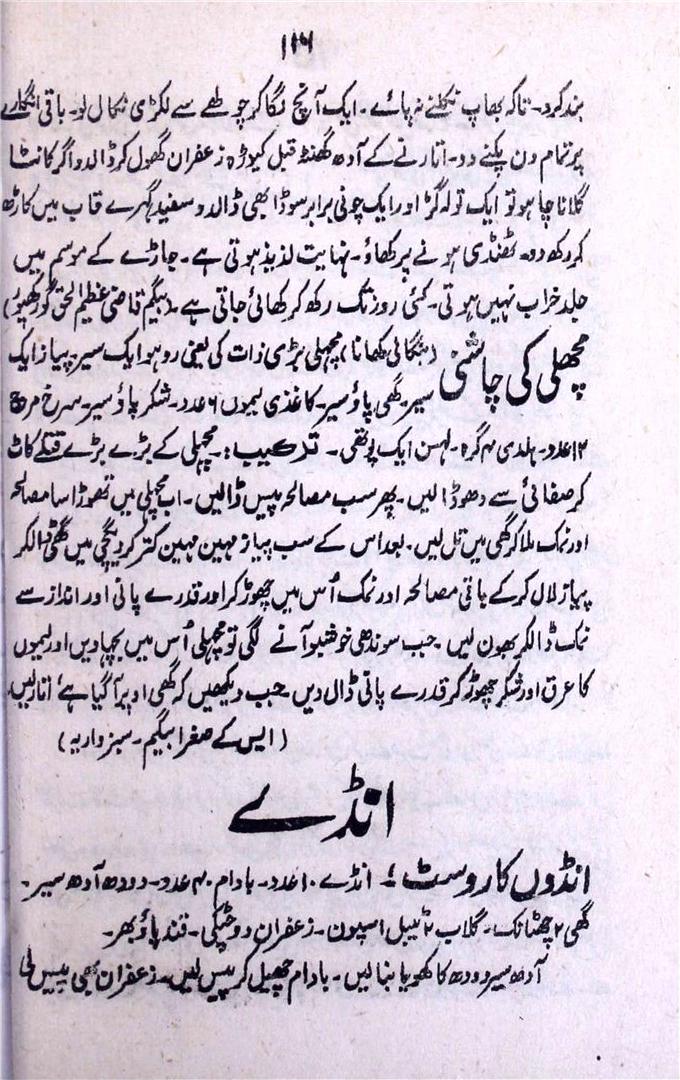 ۱۱۶
بند کرد۔ تاکہ بھاپ نکلنے نہ پائے۔ ایک آنچ لگا کر چولھے سے لکڑی نکال لو۔ باقی انگارے
پر تمام دن پکنے دو۔ اتارنے کے آدھ گھنٹہ قبل کیوڑہ زعفران گھول کر ڈالدو اگر کانٹا
گلانا چاہو تو ایک تولہ گڑ اور ایک چونی برابر سوڈا بھی ڈالدو سفید گہرے قاب میں کاڑھ
کر رکھ دو۔ ٹھنڈی ہونے پر کھاؤ۔ نہایت لذیذ ہوتی ہے۔ جاڑے کے موسم میں
جلد خراب نہیں ہوتی۔ کئی روز تک رکھ کر کھائی جاتی ہے۔ (بیگم قاضی عظیم الحق گورکھپور)
مچھلی کی چاشنی (بنگالی کھانا) مچھلی بڑی ذات کی یعنی روہو ایک سیر۔ پیاز ایک
سیر۔ گھی پاؤ سیر۔ کاغذی لیموں ۶ عدد۔ شکر پاؤ سیر۔ سرخ مرچ
۱۲ عدد۔ ہلدی ۴ گرہ۔ لہسن ایک پوتھی۔ ترکیب:۔ مچھلی کے بڑے بڑے قتلے کاٹ
کر صفائی سے دھو ڈالیں۔ پھر سب مصالحہ پیس ڈالیں۔ اب مچھلی میں تھوڑا سا مصالحہ
اور نمک ملا کر گھی میں تل لیں۔ بعد اس کے سب پیاز مہین مہین کتر کر دیگچی میں گھی ڈالکر
پیاز لال کر کے باقی مصالحہ اور نمک اُس میں چھوڑ کر اور قدرے پانی اور انداز سے
نمک ڈالکر بھون لیں۔ جب سوندھی خوشبو آنے لگی تو مچھلی اُس میں بچھا دیں اور لیموں
کا عرق اور شکر چھوڑ کر قدرے پانی ڈال دیں جب دیکھیں کہ گھی اوپر آ گیا ہے، اتار لیں۔
(ایس کے صغرا بیگم۔ سبزواریہ)
انڈے
انڈوں کا روسٹ:۔ انڈے ۱۰ عدد۔ بادام ۴۰ عدد۔ دودھ آدھ سیر۔
گھی ۲ چھٹانک۔ گلاب ۲ ٹیبل اسپون۔ زعفران دو چٹکی۔ قند پاؤ بھر۔
آدھ سیر دودھ کا کھویا بنا لیں۔ بادام چھیل کر پیس لیں۔ زعفران بھی پیس لی